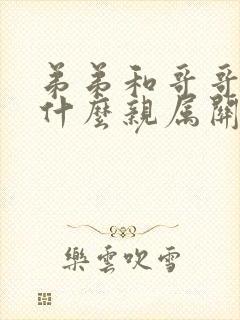 弟弟和哥哥
什麼親屬關
樂雲吹雪